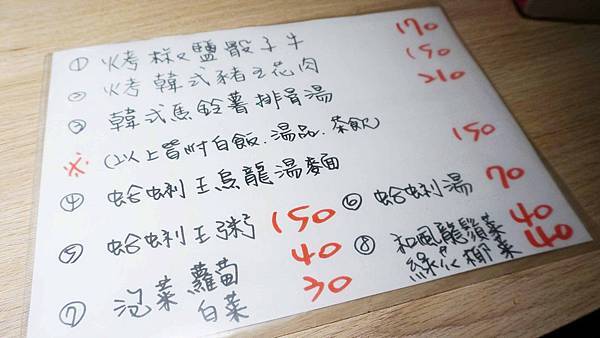 ① 烤椒鹽骰子牛 170
② 烤韓式豬五花肉 150
③ 韓式馬鈴薯排骨湯 210
※ (以上皆附白飯.湯品.茶飲)
④ 蛤蜊王烏龍湯麵 150
⑤ 蛤蜊王粥 150
⑥ 蛤蜊湯 70
⑦ 泡菜 蘿蔔 40
白菜 30
⑧ 和風龍鬚菜 40
綠花椰菜 40